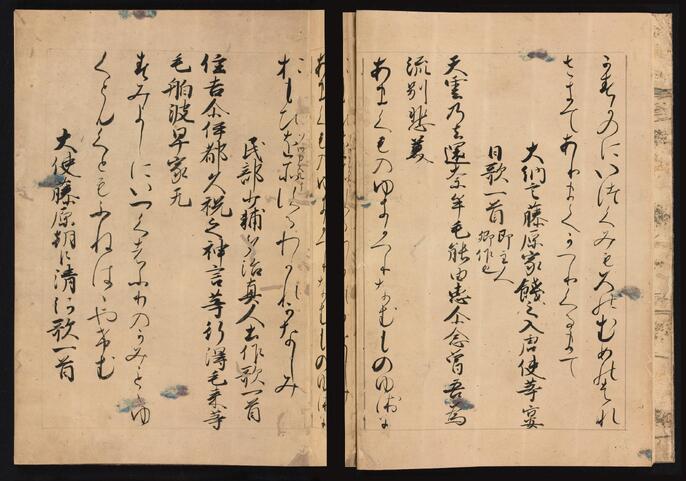 かすかのにいつくみもろのむめのはな
さきてありまてかへりくるまて
大納言藤原家餞之入唐使等宴
日歌一首 即主人
卿作也
天雲乃去還奈牟毛能由恵尓念曽吾為
流別悲美
あまくものゆきかへりなむものゆゑに
あまくものゆきかへりなむものゆゑに
おもひそわかするわかれかなしみ
民部少輔多治真人土作歌一首
住吉尓伊都久祝之神言等行得毛来等
毛舶波早家无
すみよしにいつくはふりのかみことゝゆ
くともくともふねははやけむ
大使藤原朝臣清河歌一首